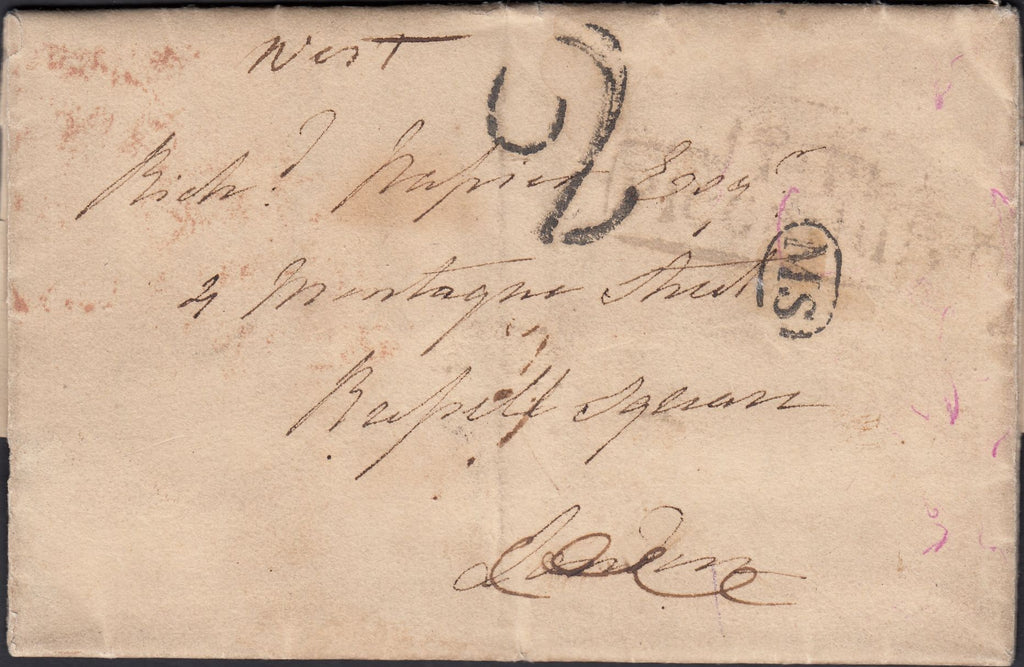 West
2
Richd. Napier Esqr
MS
4 Montague Street
Russell Square
London